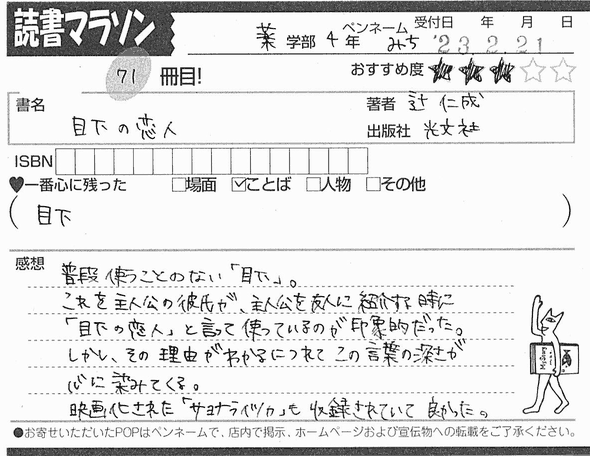 読書マラソン
薬 学部 4 年 ペンネーム みち 受付日 年 月 日 '23. 2. 21
71 冊目! おすすめ度 ★★★☆☆
書名 目下の恋人 著者 辻 仁成
出版社 光文社
ISBN
♥一番心に残った □場面 ☑ことば □人物 □その他
( 目下 )
感想
普段使うことのない「目下」。
これを主人公の彼氏が、主人公を友人に紹介する時に
「目下の恋人」と言って使っているのが印象的だった。
しかし、その理由がわかるにつれてこの言葉の深さが
心に染みてくる。
映画化された「サヨナライツカ」も収録されていて良かった。
●お寄せいただいたPOPはペンネームで、店内で掲示、ホームページおよび宣伝物への転載をご了承ください。